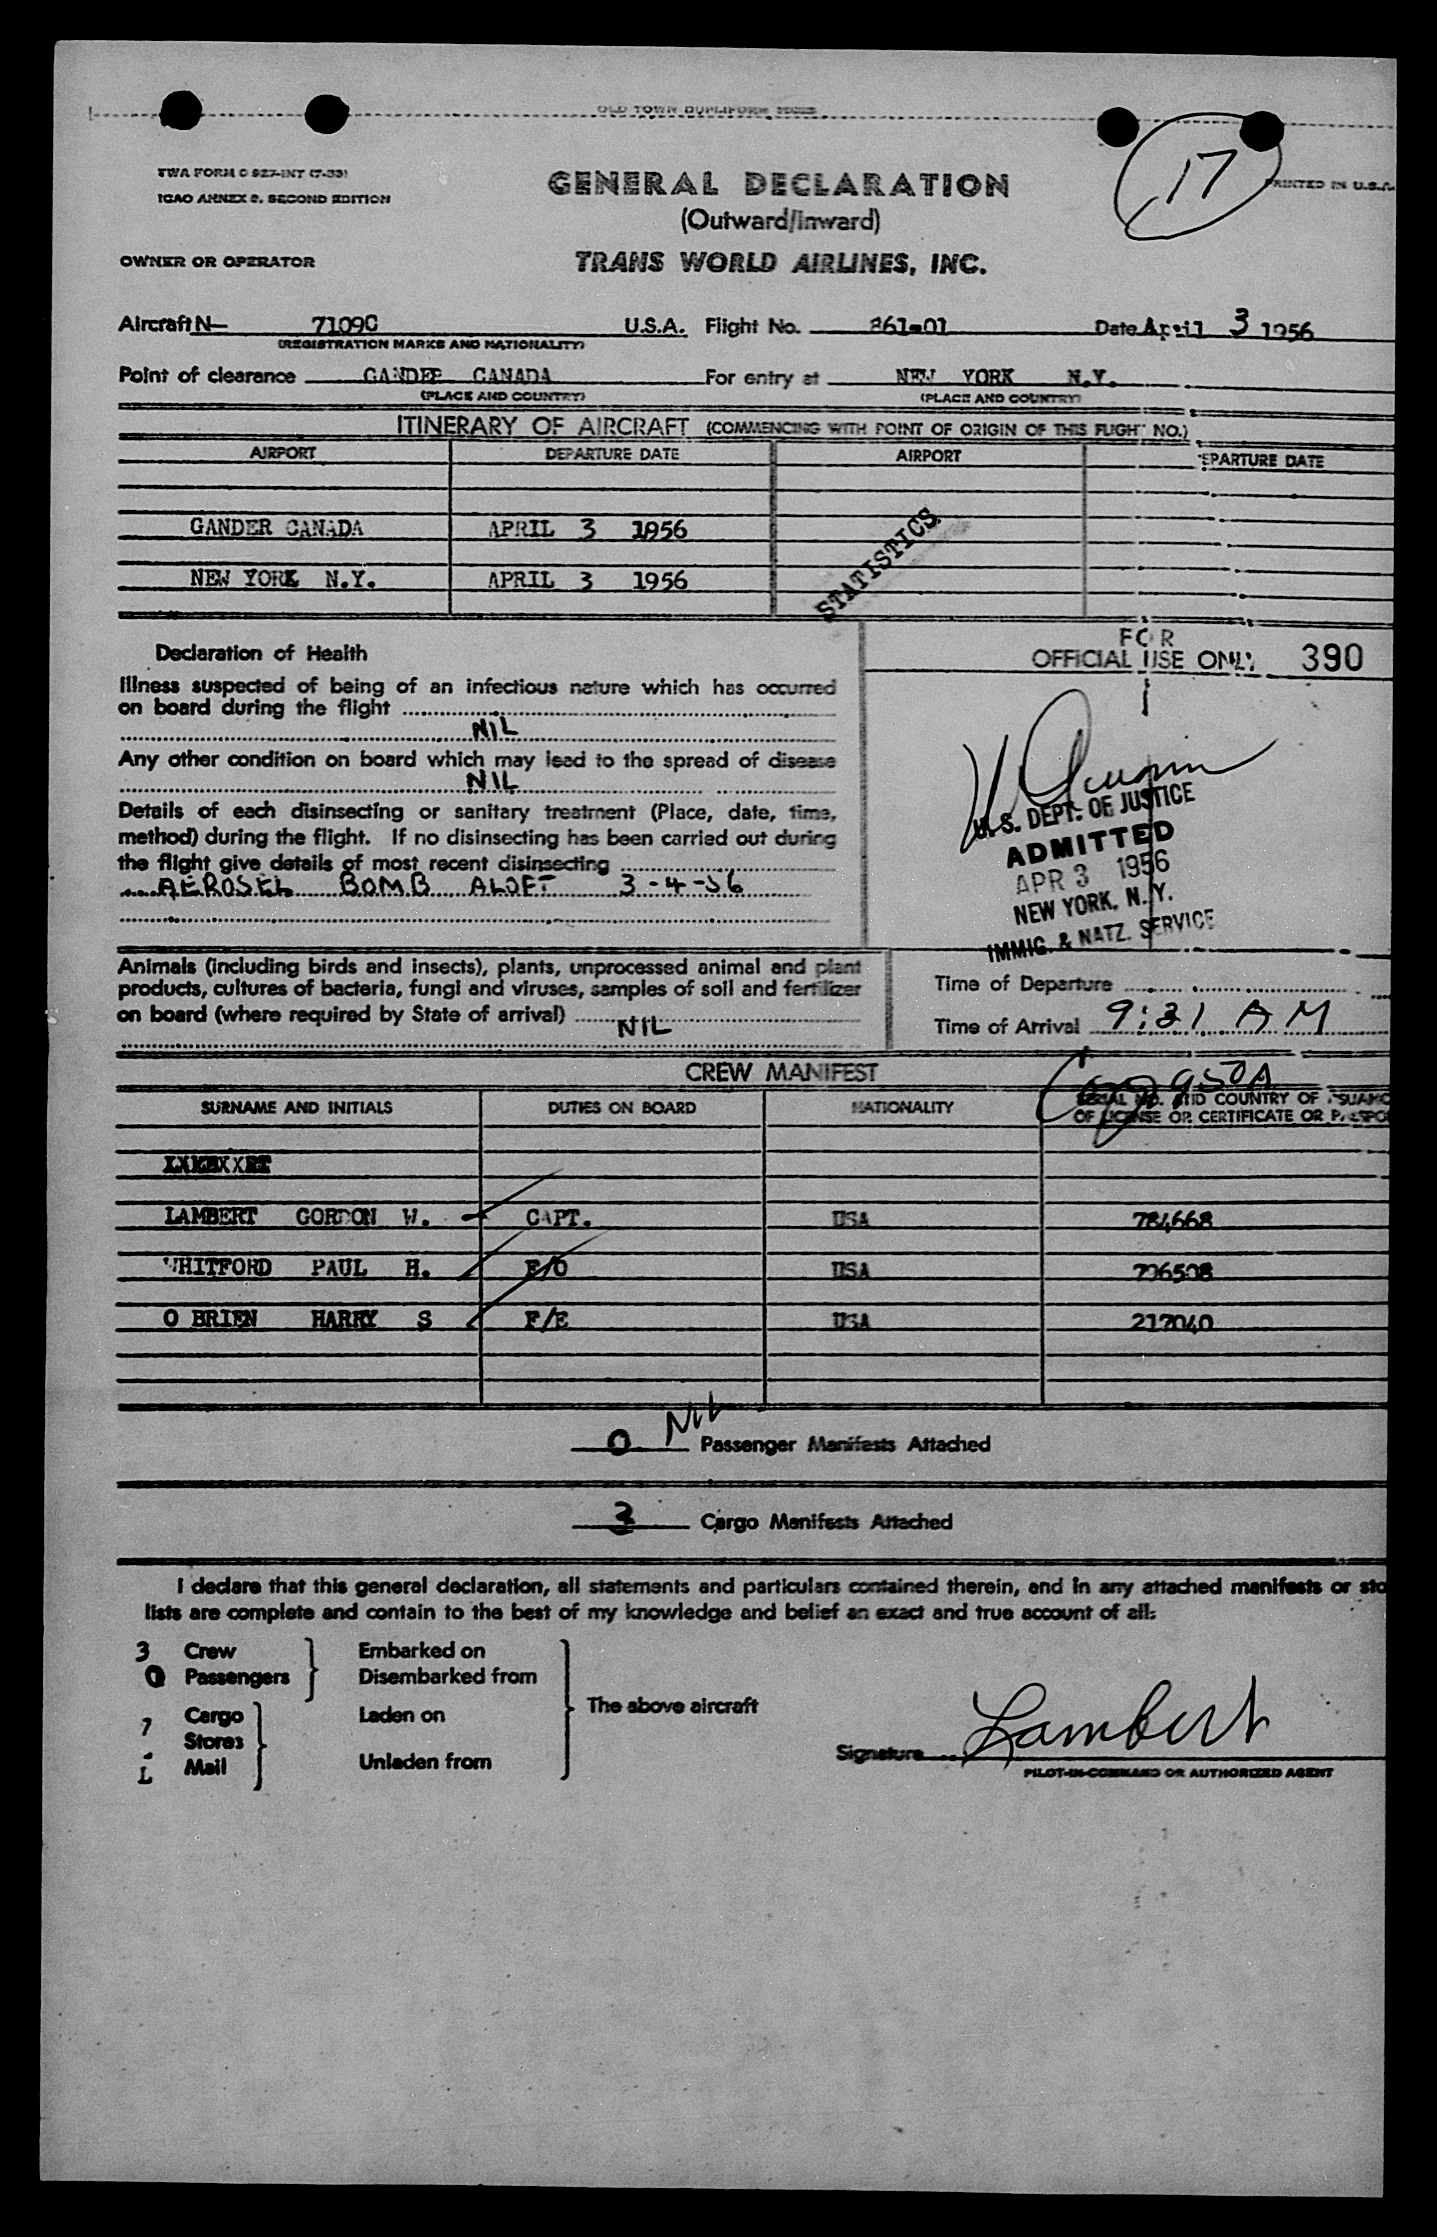 OLD TOWN DUPLIFORM
17
TWA FORM C 927-INT (7-53)
ICAO ANNEX 9, SECOND EDITION
PRINTED IN U.S.A.
GENERAL DECLARATION
(Outward/Inward)
OWNER OR OPERATOR TRANS WORLD AIRLINES, INC.
Aircraft N- 7109C U.S.A. Flight No. 861-01 Date April 3 1956
(REGISTRATION MARKS AND NATIONALITY)
Point of clearance GANDER CANADA For entry at NEW YORK N.Y.
(PLACE AND COUNTRY) (PLACE AND COUNTRY)
ITINERARY OF AIRCRAFT (COMMENCING WITH POINT OF ORIGIN OF THIS FLIGHT NO.)
AIRPORT DEPARTURE DATE AIRPORT EPARTURE DATE
GANDER CANADA APRIL 3 1956
STATISTICS
NEW YORK N.Y. APRIL 3 1956
FOR
OFFICIAL USE ONLY 390
Declaration of Health
Illness suspected of being of an infectious nature which has occurred
on board during the flight
NIL
Any other condition on board which may lead to the spread of disease
NIL
Details of each disinsecting or sanitary treatment (Place, date, time,
method) during the flight. If no disinsecting has been carried out during
the flight give details of most recent disinsecting
AEROSEL BOMB ALOFT 3-4-56
U.S. DEPT. OF JUSTICE
ADMITTED
APR 3 1956
NEW YORK, N.Y.
IMMIG. & NATZ. SERVICE
Animals (including birds and insects), plants, unprocessed animal and plant
products, cultures of bacteria, fungi and viruses, samples of soil and fertilizer
on board (where required by State of arrival)
NIL
Time of Departure
Time of Arrival 9:31 AM
CREW MANIFEST
950A
SURNAME AND INITIALS DUTIES ON BOARD NATIONALITY SERIAL NO. AND COUNTRY OF ISSUANC
OF LICENSE OR CERTIFICATE OR PASSPO
LAMBERT GORDON W. CAPT. USA 784668
WHITFORD PAUL H. F/O USA 796508
O BRIEN HARRY S F/E USA 217040
0 Nil Passenger Manifests Attached
3 Cargo Manifests Attached
I declare that this general declaration, all statements and particulars contained therein, and in any attached manifests or sto
lists are complete and contain to the best of my knowledge and belief an exact and true account of all:
3 Crew Embarked on
0 Passengers Disembarked from
Cargo Laden on
The above aircraft
Stores
Mail Unladen from
Signature Lambert
PILOT-IN-COMMAND OR AUTHORIZED AGENT